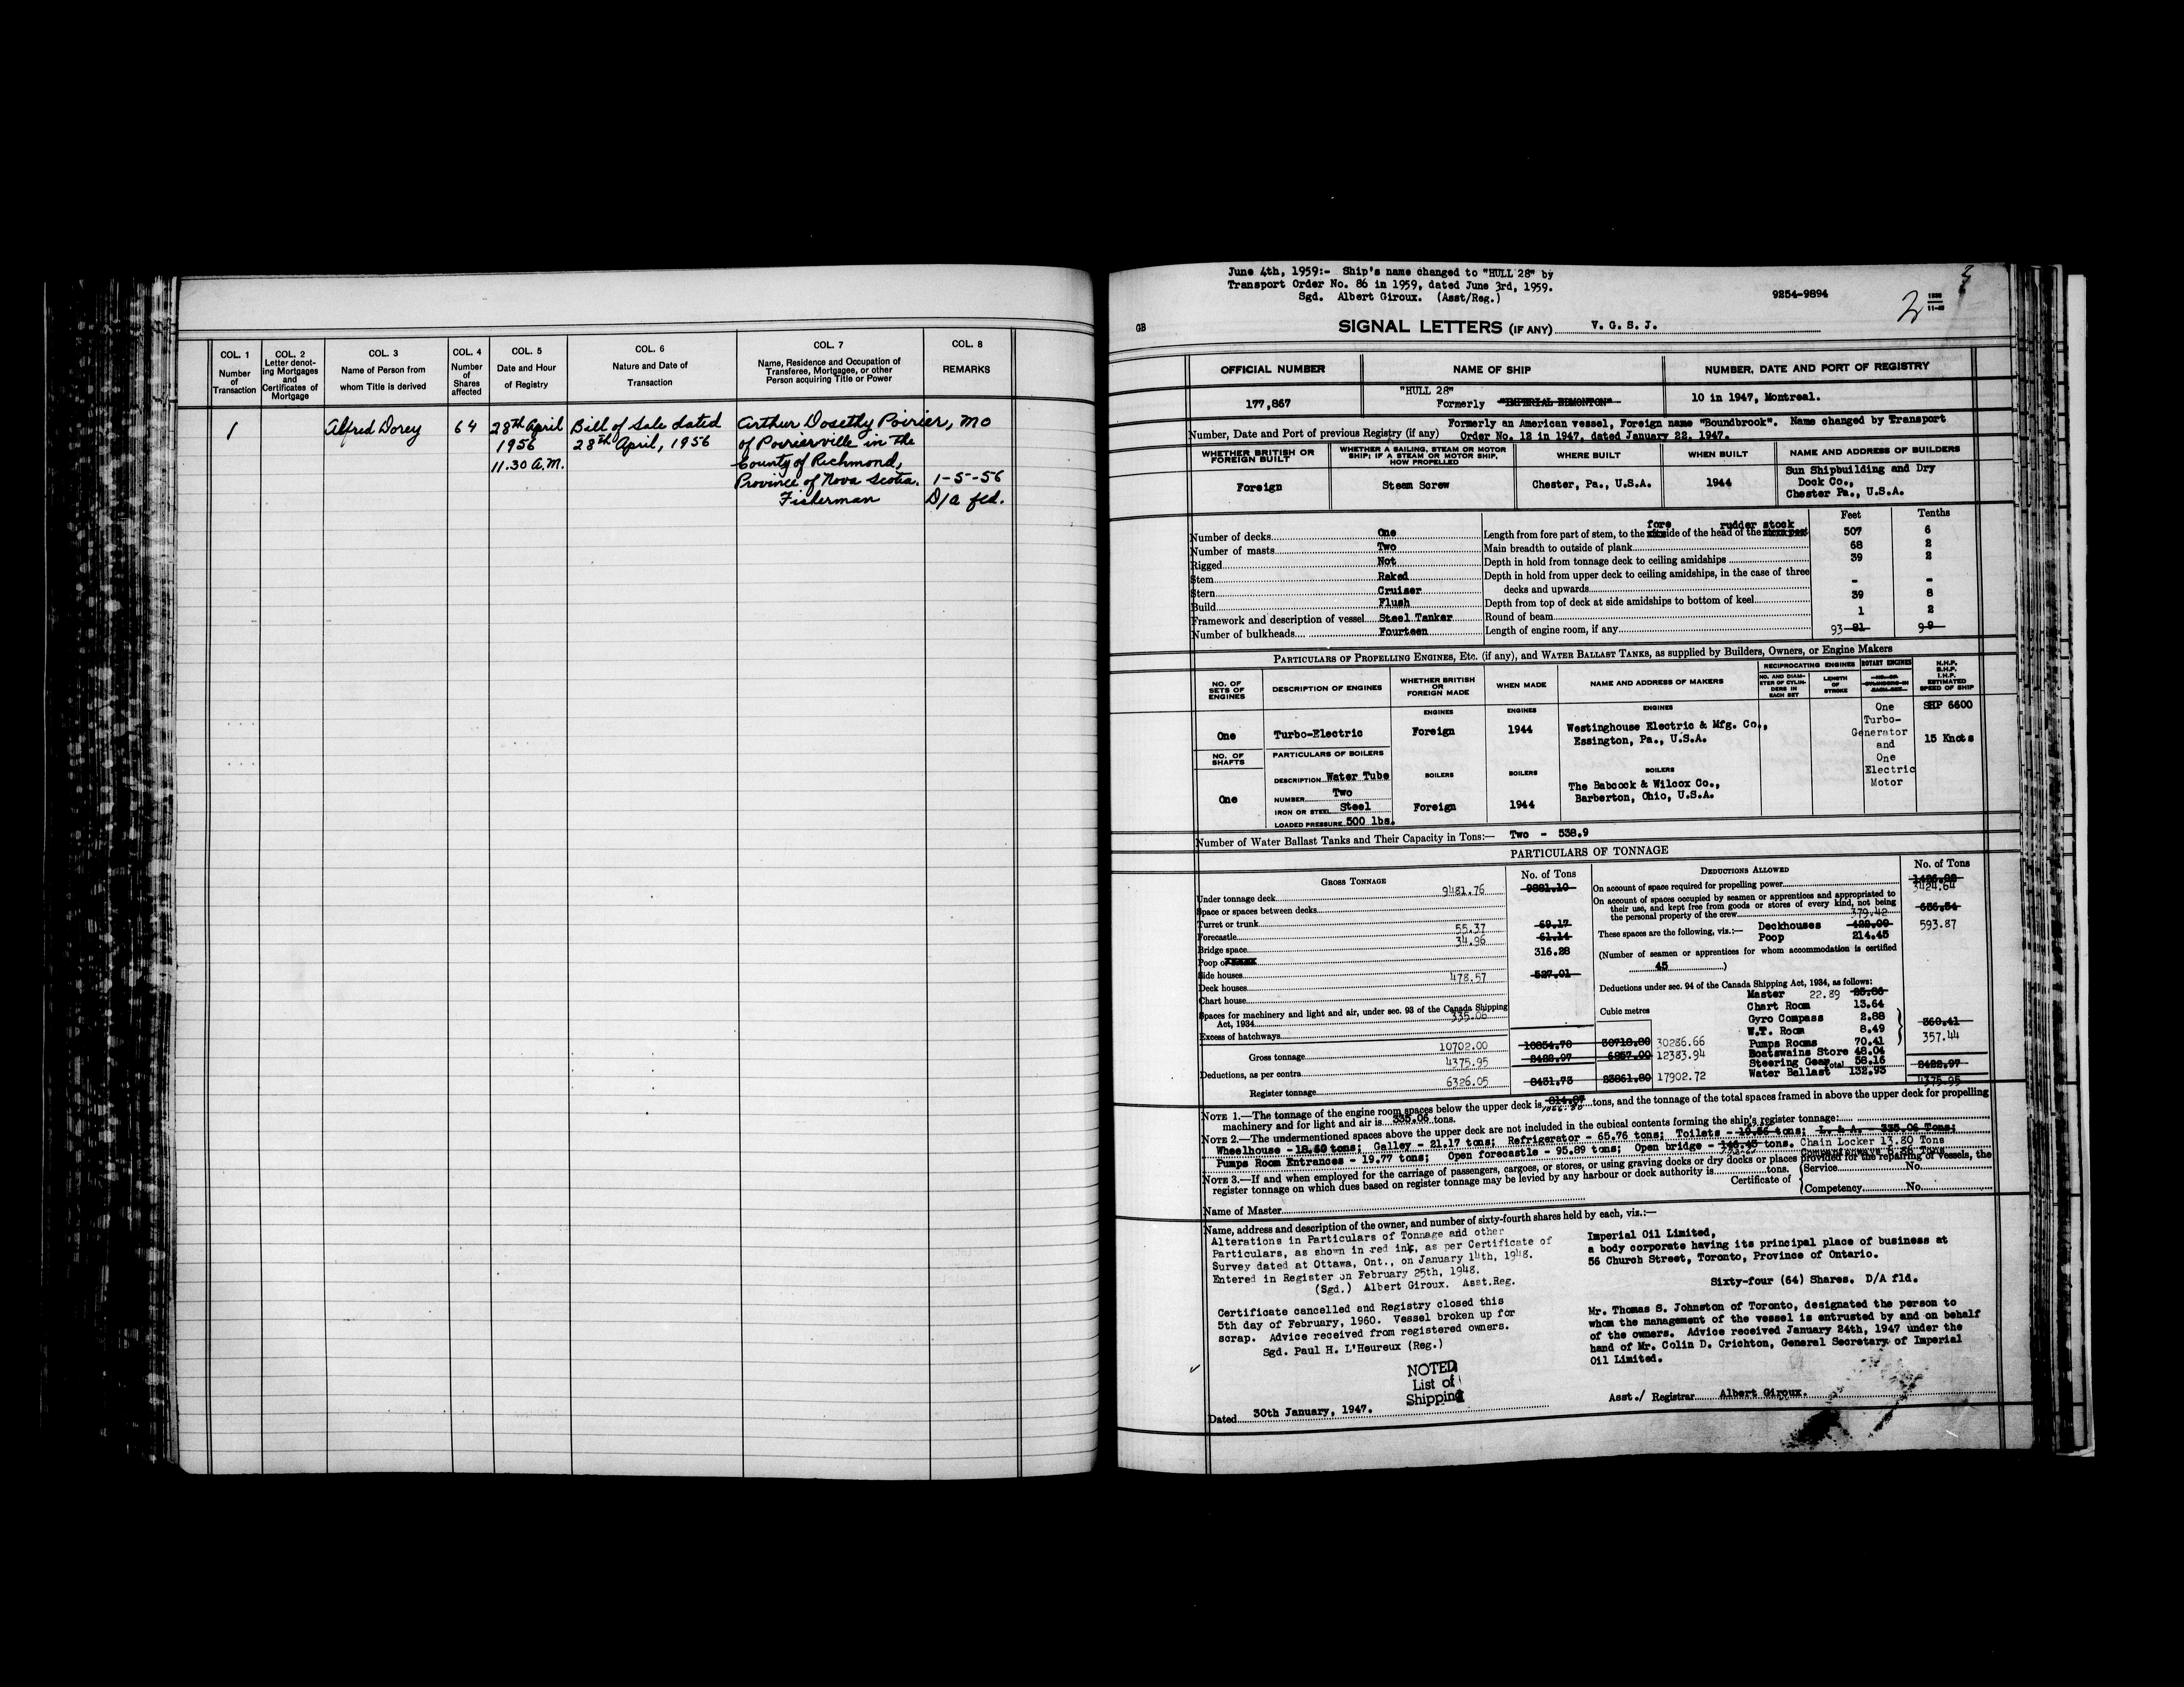 COL. 1
Number
of
Transaction
COL. 2
Letter denot-
ing Mortgages
and
Certificates of
Mortgage
COL. 3
Name of Person from
whom Title is derived
COL. 4
Number
of
Shares
affected
COL. 5
Date and Hour
of Registry
COL. 6
Nature and Date of
Transaction
COL. 7
Name, Residence and Occupation of
Transferee, Mortgagee, or other
Person acquiring Title or Power
COL. 8
REMARKS
1 Alfred Dorey 64 28th April Bill of Sale dated Arthur Dosethy Poirier, MO
1956 28th April, 1956 of Poirierville in the
11.30 A.M. County of Richmond,
Province of Nova Scotia. 1-5-56
Fisherman D/a fld.
June 4th, 1959:- Ship's name changed to "HULL 28" by
Transport Order No. 86 in 1959, dated June 3rd, 1959.
Sgd. Albert Giroux. (Asst/Reg.)
9254-9894
2
GB
SIGNAL LETTERS (IF ANY) V. G. S. J.
OFFICIAL NUMBER NAME OF SHIP NUMBER, DATE AND PORT OF REGISTRY
177,867 "HULL 28" 10 in 1947, Montreal.
Formerly "IMPERIAL EDMONTON"
Number, Date and Port of previous Registry (if any) Formerly an American vessel, Foreign name "Boundbrook". Name changed by Transport
Order No. 12 in 1947, dated January 22, 1947.
WHETHER BRITISH OR
FOREIGN BUILT
WHETHER A SAILING, STEAM OR MOTOR
SHIP; IF A STEAM OR MOTOR SHIP,
HOW PROPELLED
WHERE BUILT
WHEN BUILT
NAME AND ADDRESS OF BUILDERS
Foreign Steam Screw Chester, Pa., U.S.A. 1944
Sun Shipbuilding and Dry
Dock Co.,
Chester Pa., U.S.A.
Number of decks One
Number of masts Two
Rigged Not
Stem Raked
Stern Cruiser
Build Flush
Framework and description of vessel Steel Tanker
Number of bulkheads Fourteen
Feet Tenths
fore rudder stock
Length from fore part of stem, to the side of the head of the 507 6
Main breadth to outside of plank 68 2
Depth in hold from tonnage deck to ceiling amidships 39 2
Depth in hold from upper deck to ceiling amidships, in the case of three
decks and upwards - -
Depth from top of deck at side amidships to bottom of keel 39 8
Round of beam 1 2
Length of engine room, if any 93 81 9 9
PARTICULARS OF PROPELLING ENGINES, ETC. (if any), and WATER BALLAST TANKS, as supplied by Builders, Owners, or Engine Makers
NO. OF
SETS OF
ENGINES
DESCRIPTION OF ENGINES
WHETHER BRITISH
OR
FOREIGN MADE
WHEN MADE
NAME AND ADDRESS OF MAKERS
RECIPROCATING ENGINES
NO. AND DIAM-
ETER OF CYLIN-
DERS IN
EACH SET
LENGTH
OF
STROKE
ROTARY ENGINES
NO. OF
CYLINDERS IN
EACH SET
N.H.P.
B.H.P.
I.H.P.
ESTIMATED
SPEED OF SHIP
ENGINES ENGINES ENGINES
One Turbo-Electric Foreign 1944 Westinghouse Electric & Mfg. Co.,
Essington, Pa., U.S.A.
One
Turbo-
Generator
and
One
Electric
Motor
SHP 6600
15 Knots
NO. OF
SHAFTS
One
PARTICULARS OF BOILERS
DESCRIPTION Water Tube
NUMBER Two
IRON OR STEEL Steel
LOADED PRESSURE 500 lbs.
BOILERS BOILERS BOILERS
Foreign 1944 The Babcock & Wilcox Co.,
Barberton, Ohio, U.S.A.
Number of Water Ballast Tanks and Their Capacity in Tons:— Two - 538.9
PARTICULARS OF TONNAGE
GROSS TONNAGE No. of Tons
Under tonnage deck 9481.76 9881.10
Space or spaces between decks
Turret or trunk
Forecastle 55.37 69.17
Bridge space 34.96 61.14
Poop or 316.28
Side houses
Deck houses 478.57 527.01
Chart house
Spaces for machinery and light and air, under sec. 93 of the Canada Shipping
Act, 1934 335.06
Excess of hatchways
Cubic metres
Gross tonnage 10702.00 10854.70 30718.80 30286.66
Deductions, as per contra 4375.95 2422.97 6857.00 12383.94
Register tonnage 6326.05 8431.73 23861.80 17902.72
DEDUCTIONS ALLOWED No. of Tons
On account of space required for propelling power 3424.64
On account of spaces occupied by seamen or apprentices and appropriated to
their use, and kept free from goods or stores of every kind, not being
the personal property of the crew 379.42 636.54
These spaces are the following, viz.:— Deckhouses 422.09 593.87
Poop 214.45
(Number of seamen or apprentices for whom accommodation is certified
45 )
Deductions under sec. 94 of the Canada Shipping Act, 1934, as follows:
Master 22.89 25.86
Chart Room 13.64
Gyro Compass 2.88
W.T. Room 8.49 360.41
Pumps Rooms 70.41 357.44
Boatswains Store 48.04
Steering Gear 58.16
Total 2422.97
Water Ballast 132.93 4375.95
NOTE 1.—The tonnage of the engine room spaces below the upper deck is tons, and the tonnage of the total spaces framed in above the upper deck for propelling
machinery and for light and air is 335.06 tons.
NOTE 2.—The undermentioned spaces above the upper deck are not included in the cubical contents forming the ship's register tonnage:
Wheelhouse - 18.60 tons; Galley - 21.17 tons; Refrigerator - 65.76 tons; Toilets - tons; L. & A. 335.06 Tons;
Pumps Room Entrances - 19.77 tons; Open forecastle - 95.89 tons; Open bridge - tons. Chain Locker 13.80 Tons
NOTE 3.—If and when employed for the carriage of passengers, cargoes, or stores, or using graving docks or dry docks or places provided for the repairing of vessels, the
register tonnage on which dues based on register tonnage may be levied by any harbour or dock authority is tons.
Certificate of Service No.
Competency No.
Name of Master
Name, address and description of the owner, and number of sixty-fourth shares held by each, viz.:—
Alterations in Particulars of Tonnage and other
Particulars, as shown in red ink, as per Certificate of
Survey dated at Ottawa, Ont., on January 14th, 1948.
Entered in Register on February 25th, 1948.
(Sgd.) Albert Giroux. Asst.Reg.
Certificate cancelled and Registry closed this
5th day of February, 1960. Vessel broken up for
scrap. Advice received from registered owners.
Sgd. Paul H. L'Heureux (Reg.)
NOTED
List of
Shipping
Dated 30th January, 1947.
Imperial Oil Limited,
a body corporate having its principal place of business at
56 Church Street, Toronto, Province of Ontario.
Sixty-four (64) Shares. D/A fld.
Mr. Thomas S. Johnston of Toronto, designated the person to
whom the management of the vessel is entrusted by and on behalf
of the owners. Advice received January 24th, 1947 under the
hand of Mr. Colin D. Crichton, General Secretary of Imperial
Oil Limited.
Asst./ Registrar Albert Giroux.